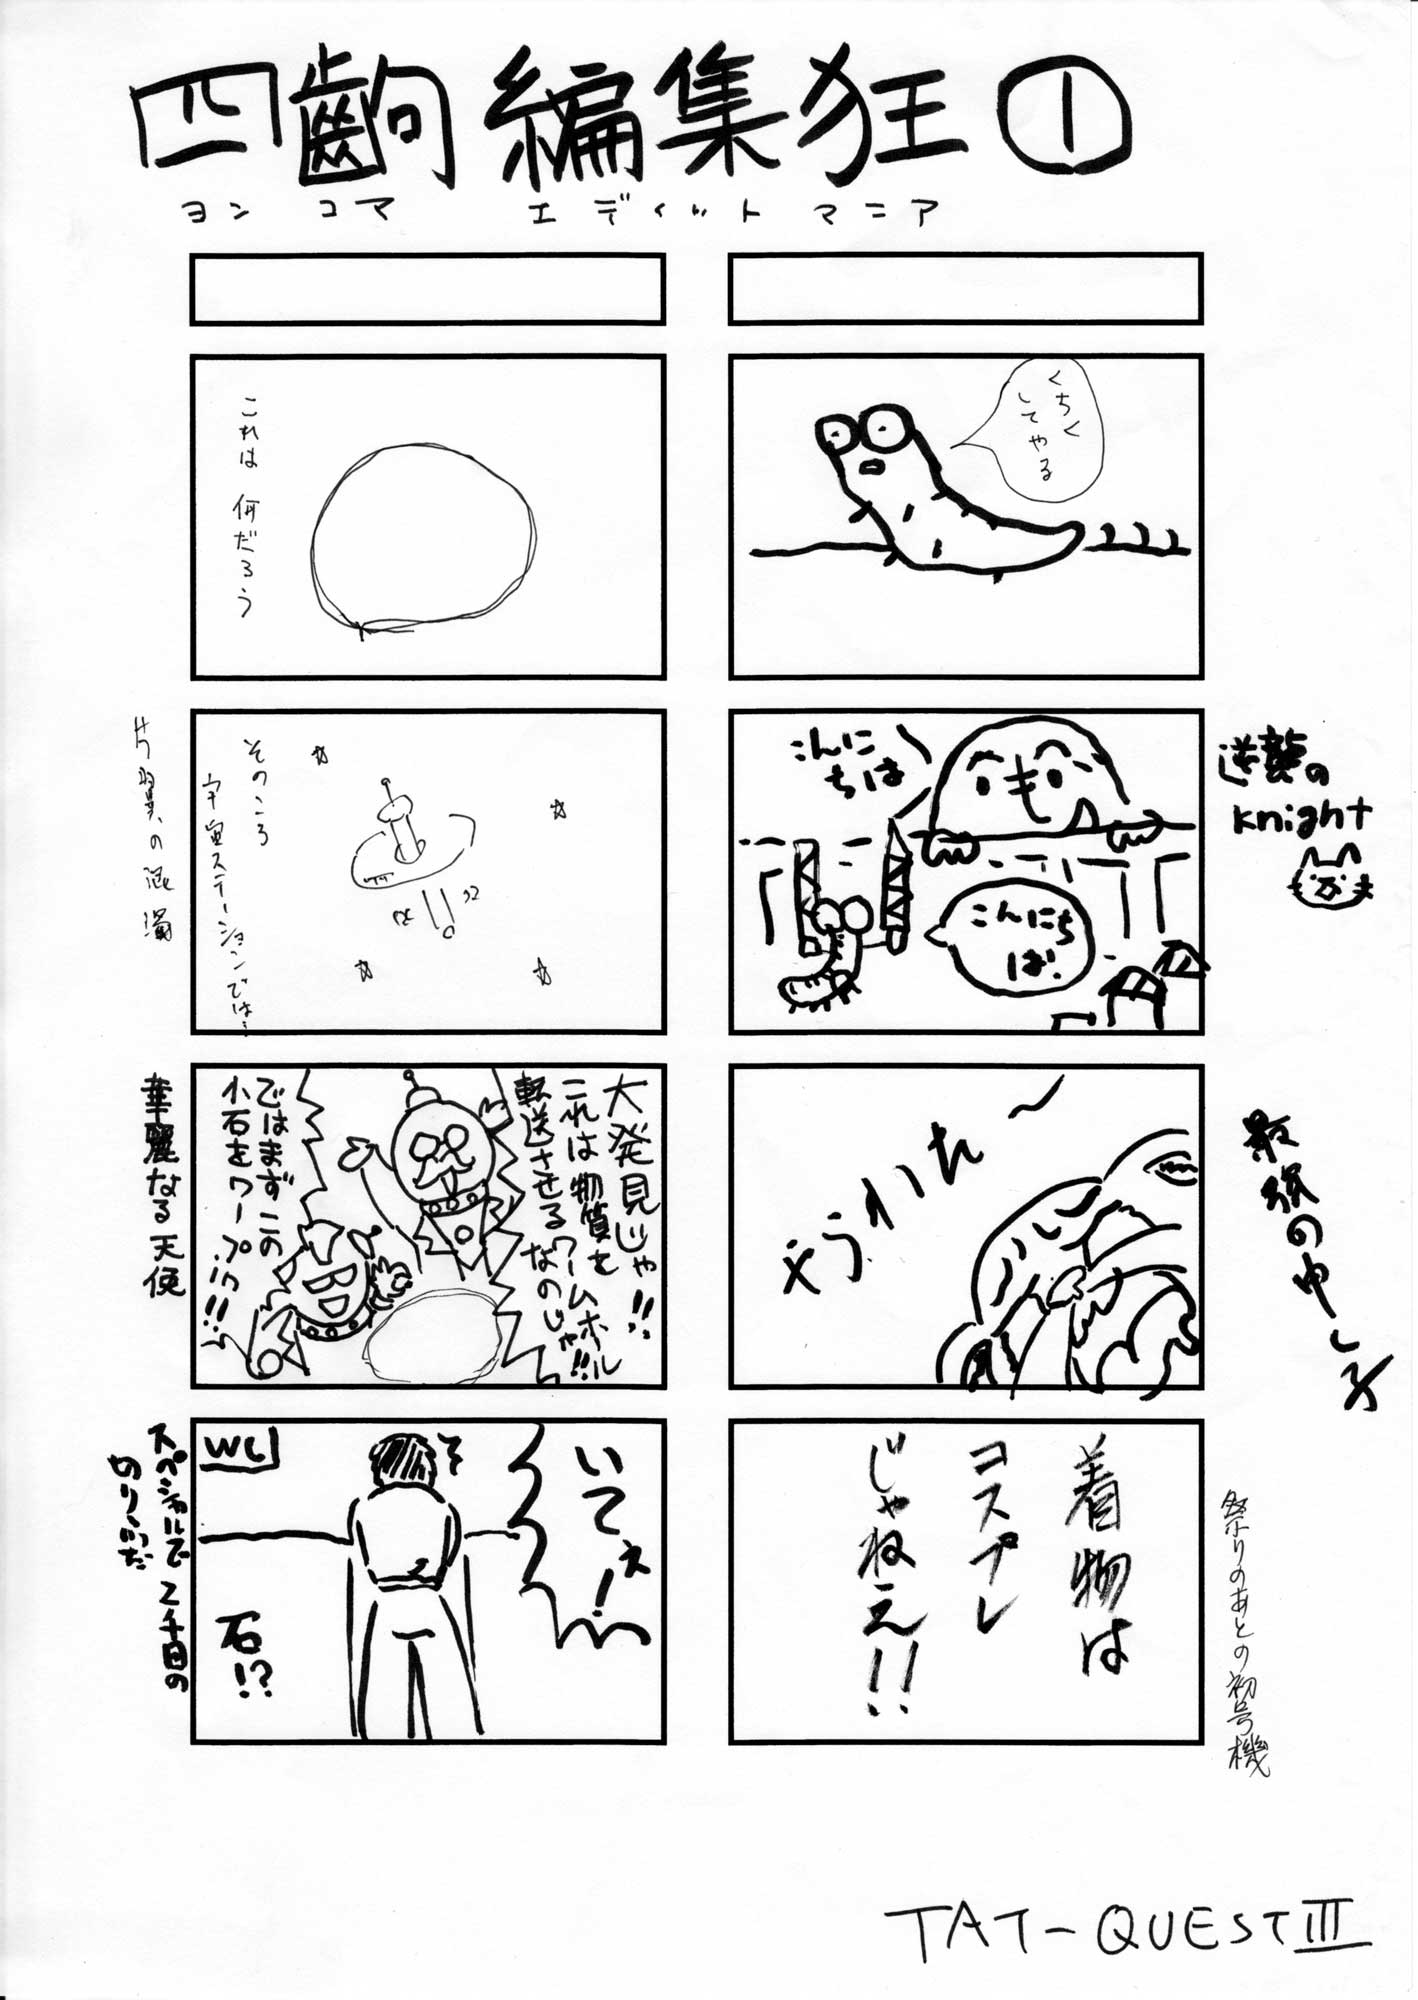 四齣 編集狂 ①
ヨン コマ エディット マニア
くちく
してやる
こんに
ちは
こんにち
は!
逆襲の
knight
えうれか
最強の中し子
着物は
コスプレ
じゃねえ!!
祭りのあとの初号機
これは 何だろう
そのころ
宇宙ステーションでは…
片翼の混濁
大発見じゃ!!
これは物質を
転送させるワームホール
なのじゃ!!
ではまずこの
小石をワープ!!
華麗なる天使
いてぇ!
WC
石!?
スペシャルで2千円の
切りくだ
TAT-QUEST III